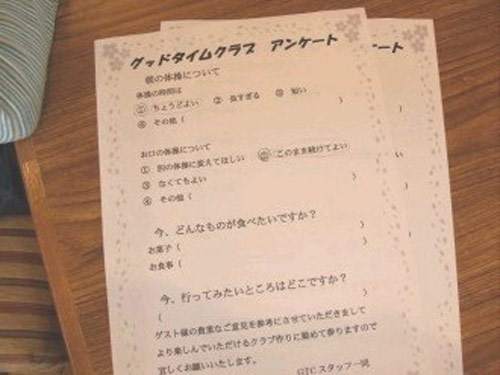 グッドタイムクラブ アンケート
朝の体操について
体操の時間は
① ちょうどよい ② 長すぎる ③ 短い
④ その他（ ）
お口の体操について
① 別の体操に変えてほしい ② このまま続けてよい
③ なくてもよい
④ その他（ ）
今、どんなものが食べたいですか？
お菓子（ ）
お食事（ ）
今、行ってみたいところはどこですか？
（ ）
ゲスト様の貴重なご意見を参考にさせていただきまして
より楽しんでいただけるクラブ作りに努めて参りますので
宜しくお願いいたします。
GTC スタッフ一同
ケート